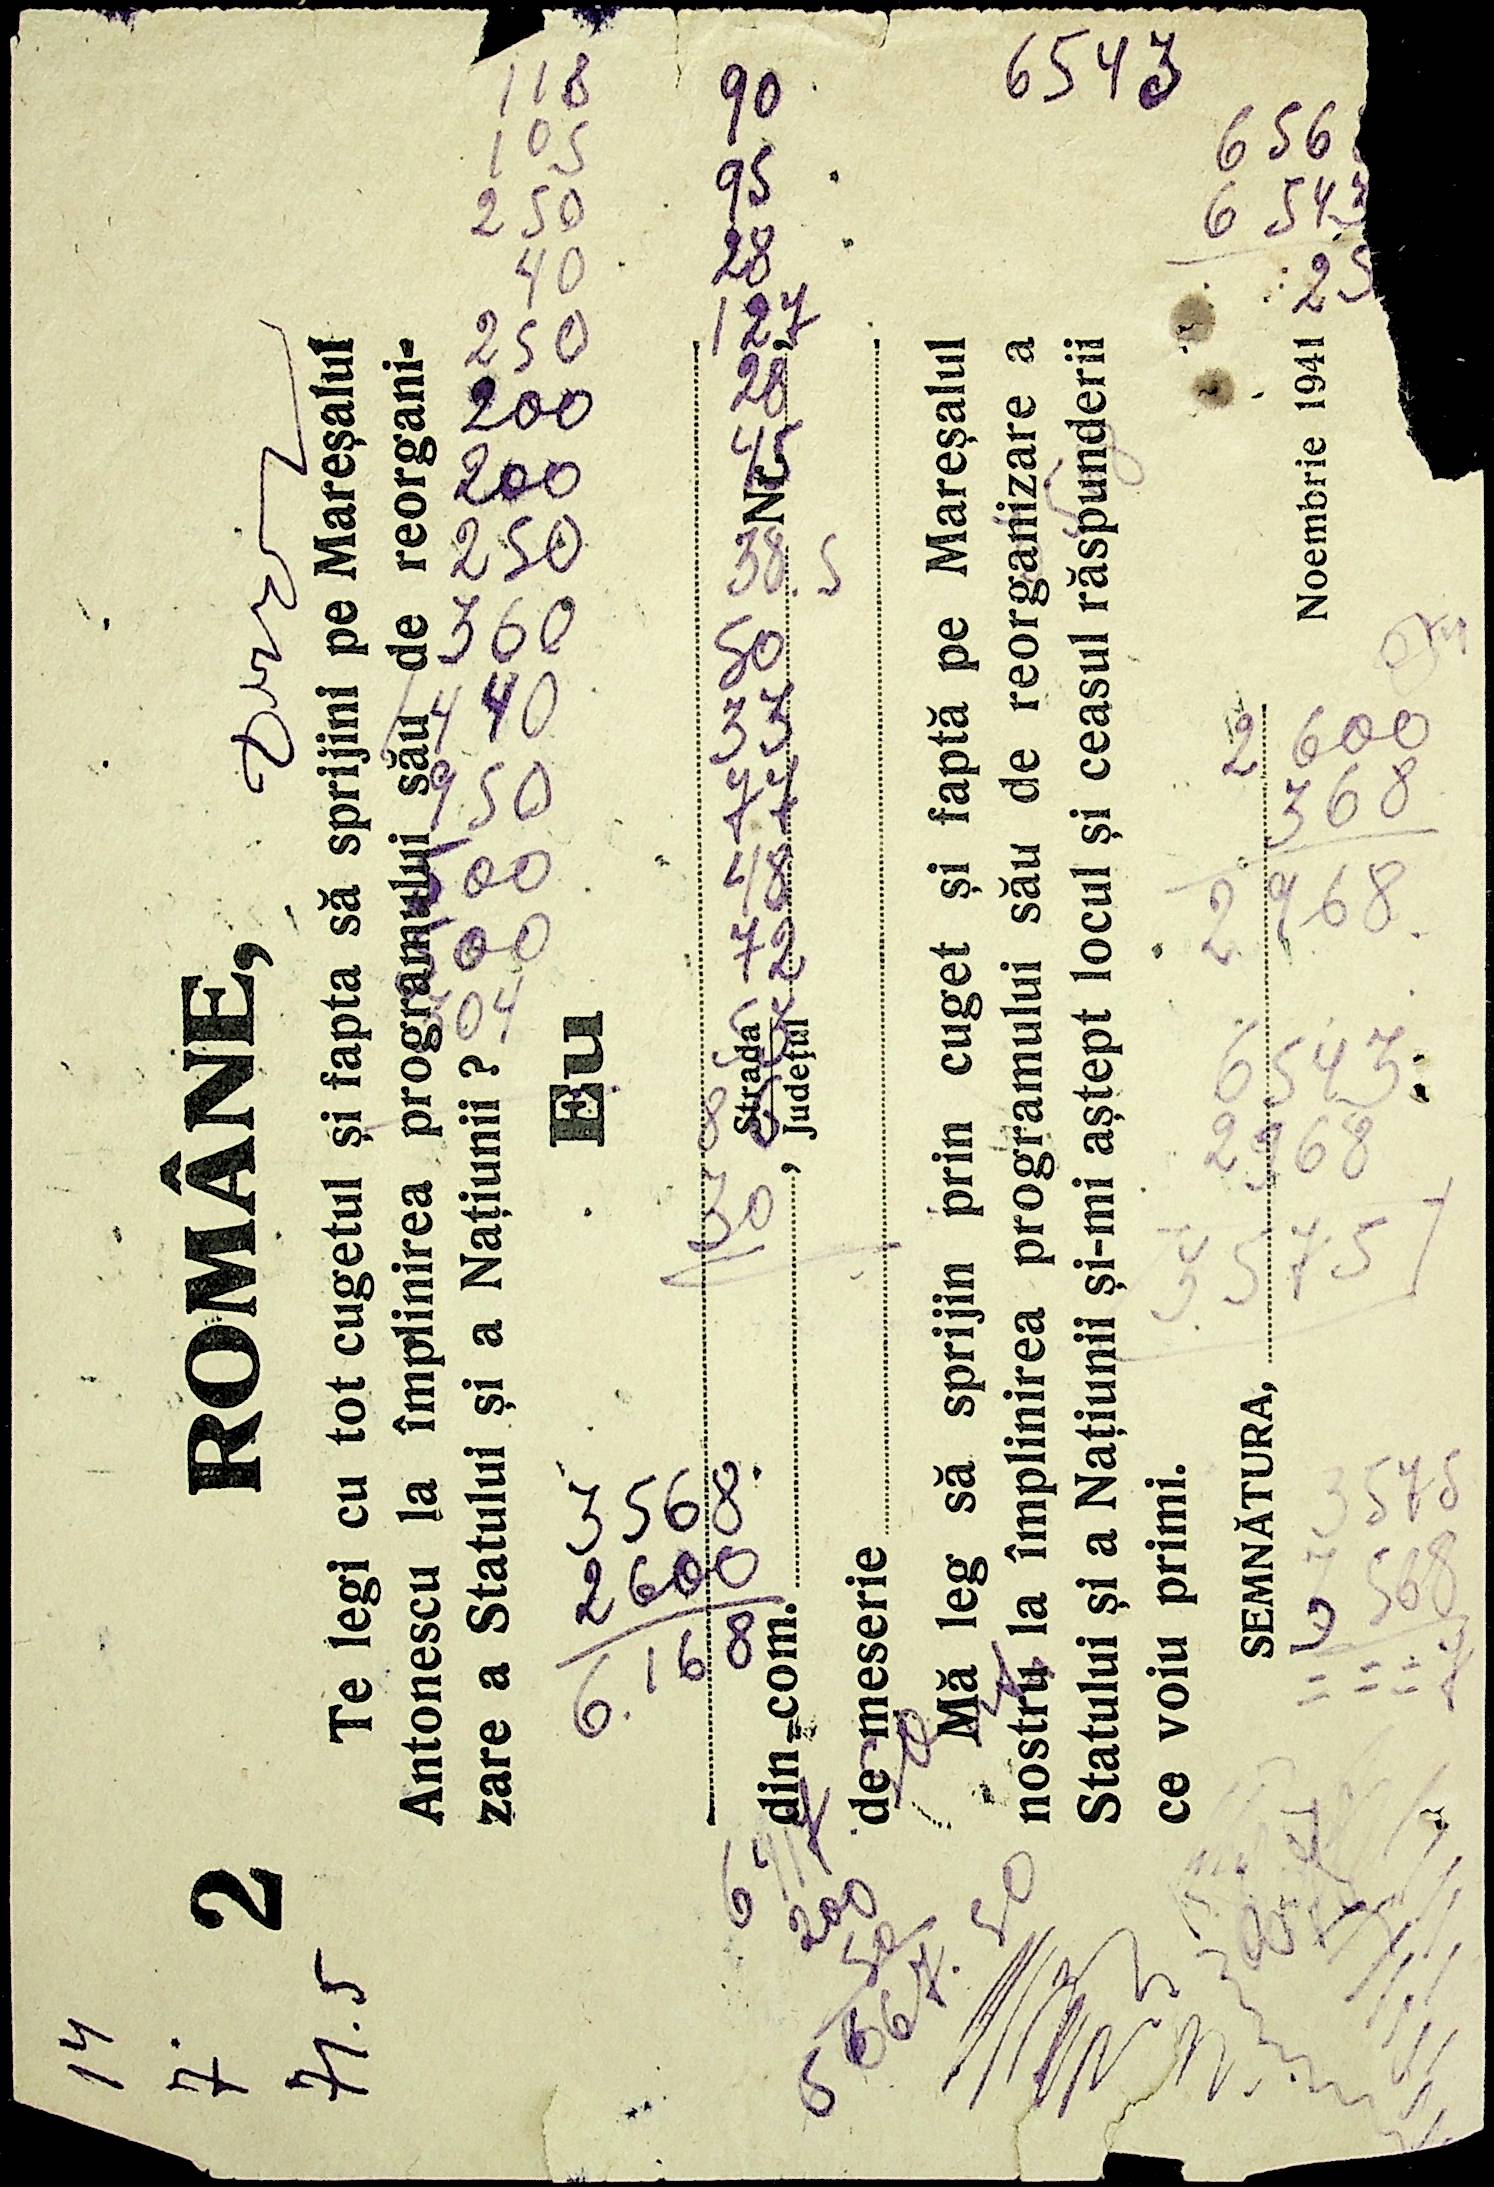 2
ROMÂNE,
Te legi cu tot cugetul și fapta să sprijini pe Mareșalul
Antonescu la împlinirea programului său de reorgani-
zare a Statului și a Națiunii ?
Eu
Strada Nr.
din com. , Județul
de meserie
Mă leg să sprijin prin cuget și faptă pe Mareșalul
nostru la împlinirea programului său de reorganizare a
Statului și a Națiunii și-mi aștept locul și ceasul răspunderii
ce voiu primi.
SEMNĂTURA,
Noembrie 1941
14
7.
71.5
118
105
250
40
250
200
200
250
360
440
950
500
500
90
95
28
127
28
45
38.5
50
33
77
48
72
30
6543
656
6 543
25
3568
2600
6.168
2600
368
2968
6543
2968
3575
3575
3568
200
50
667.50